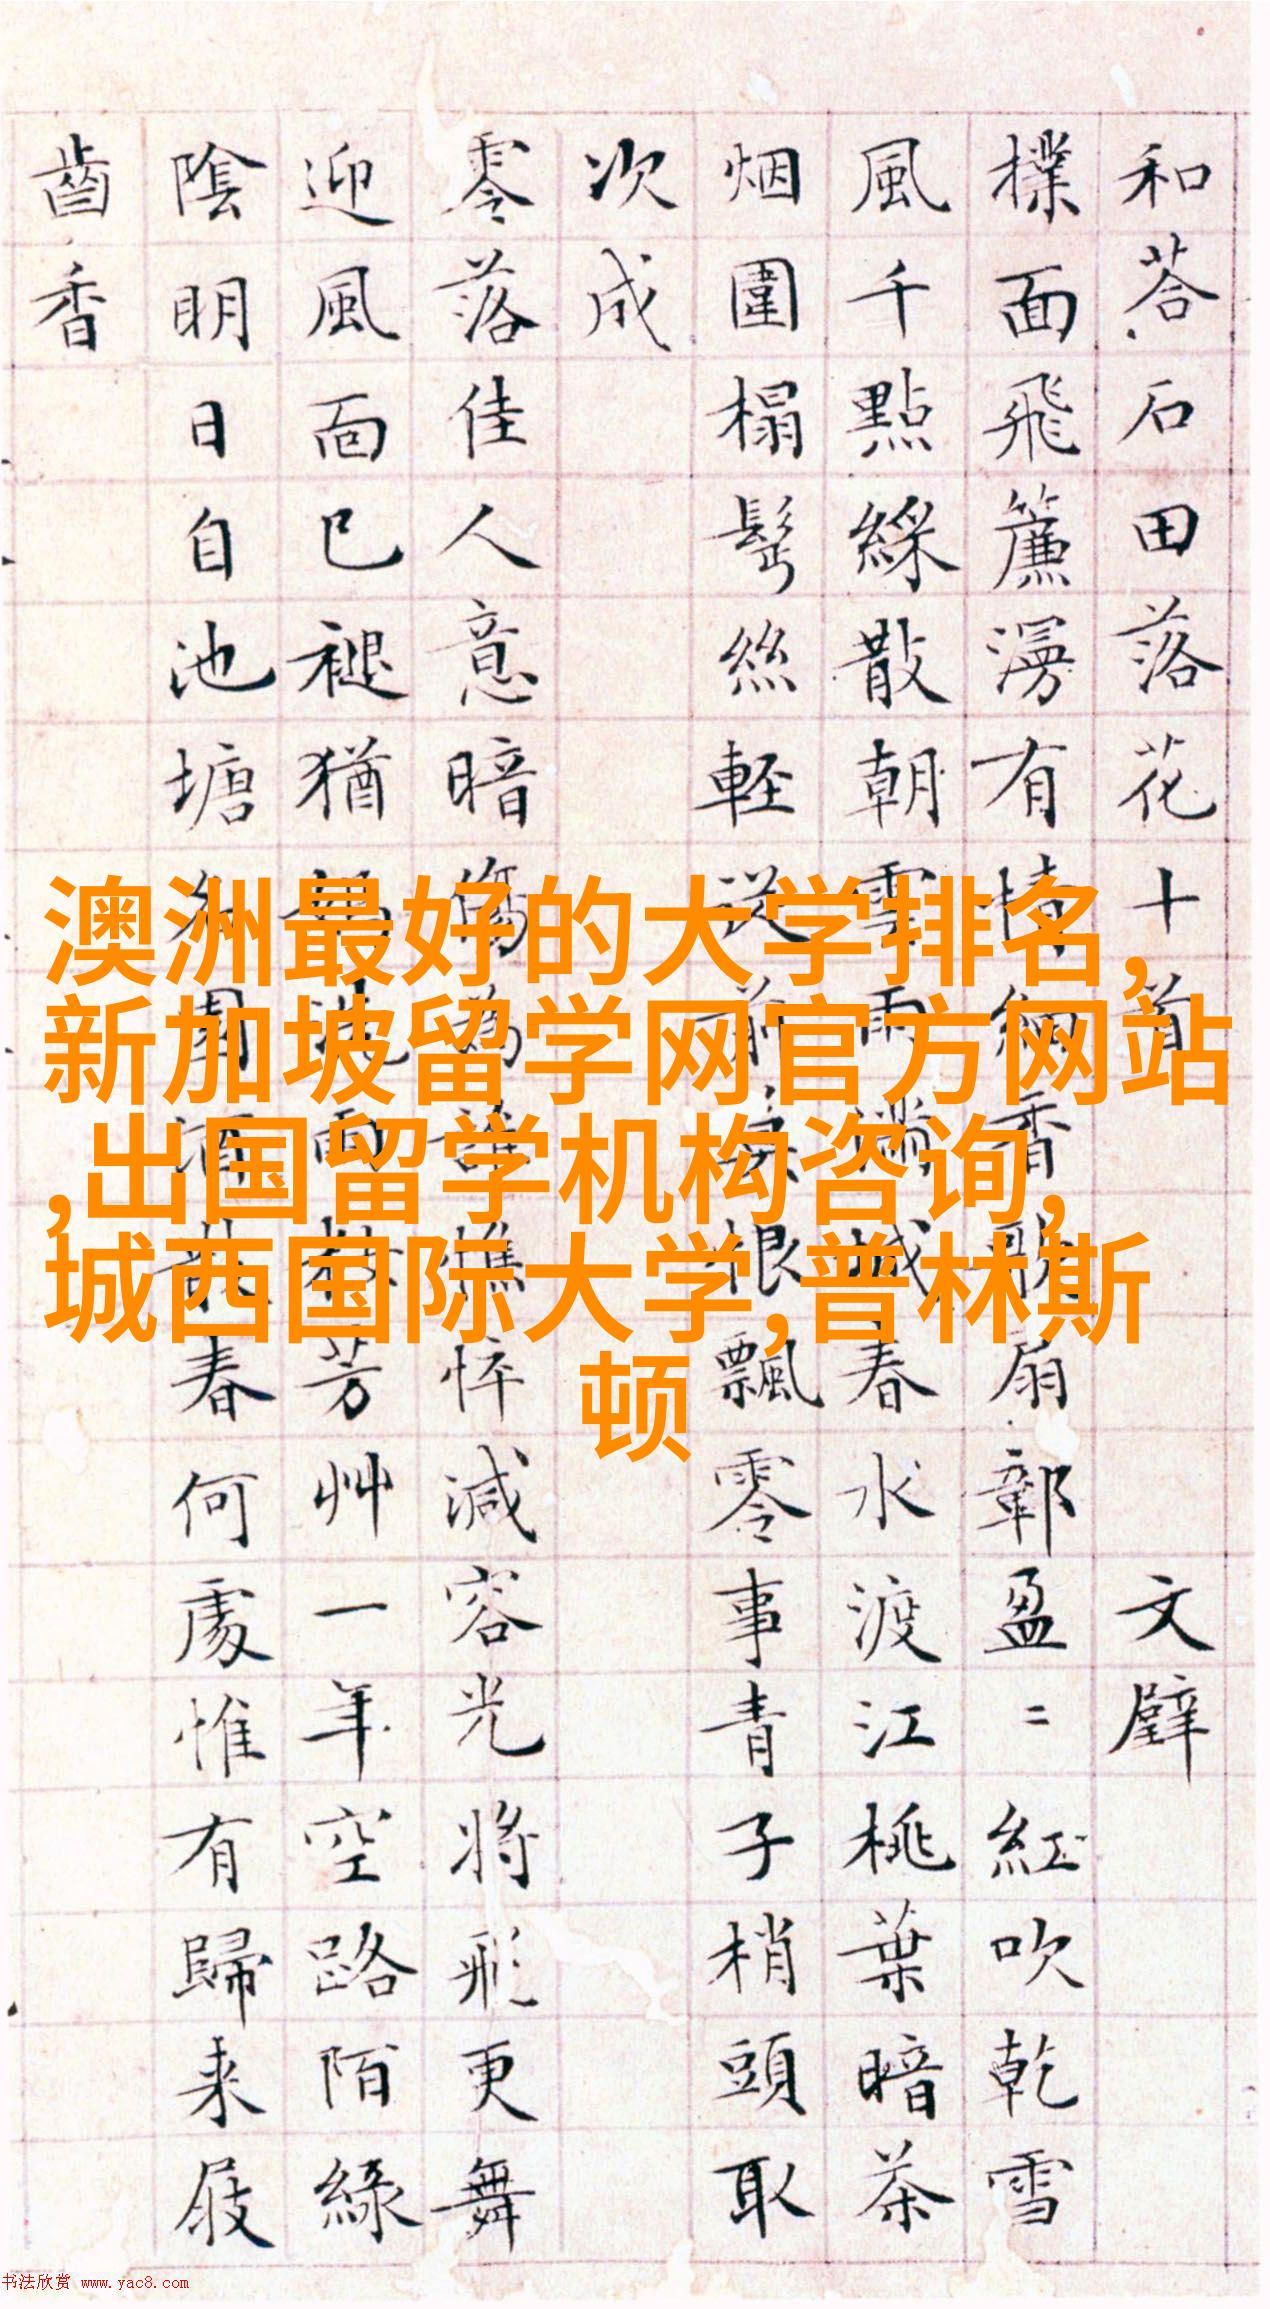 和荅石田落花十首 文璧
撲面飛簾漫有情細香歌扇鄣盈〻紅吹乾雪
風千點綵散朝雲雨滿城春水渡江桃葉暗茶
烟圍榻鬢絲輕前恨飄零事青子梢頭取
次成
零落佳人意暗傷為誰憔悴減容光將飛更舞
迎風面已褪猶芳艸一年空路陌綠
陰明日自池塘園酒散春何處惟有歸来屐
齒香
澳洲最好的大学排名,
新加坡留学网官方网站
,出国留学机构咨询,
城西国际大学,普林斯
顿
书法欣赏 www.yac8.com